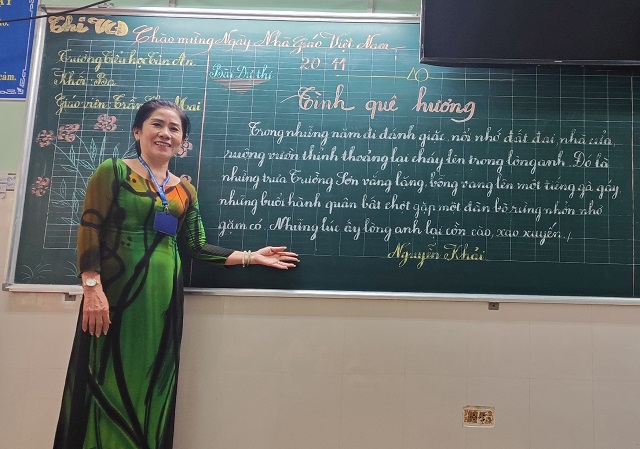 Thứ
Chào mừng Ngày Nhà Giáo Việt Nam
20 - 11
Trường Tiểu học Văn An
Khối: Ba
Giáo viên: Trần Mai
Bài Dự thi
10
Tình quê hương
Trong những năm đi đánh giặc, nỗi nhớ đất đai, nhà cửa,
ruộng vườn thỉnh thoảng lại cháy lên trong lòng anh. Đó là
những trưa Trường Sơn vắng lặng, bỗng vang lên một tiếng gà gáy,
những buổi hành quân bất chợt gặp một đàn bò rừng nhởn nhơ
gặm cỏ. Những lúc ấy lòng anh lại cồn cào, xao xuyến./.
Nguyễn Khải